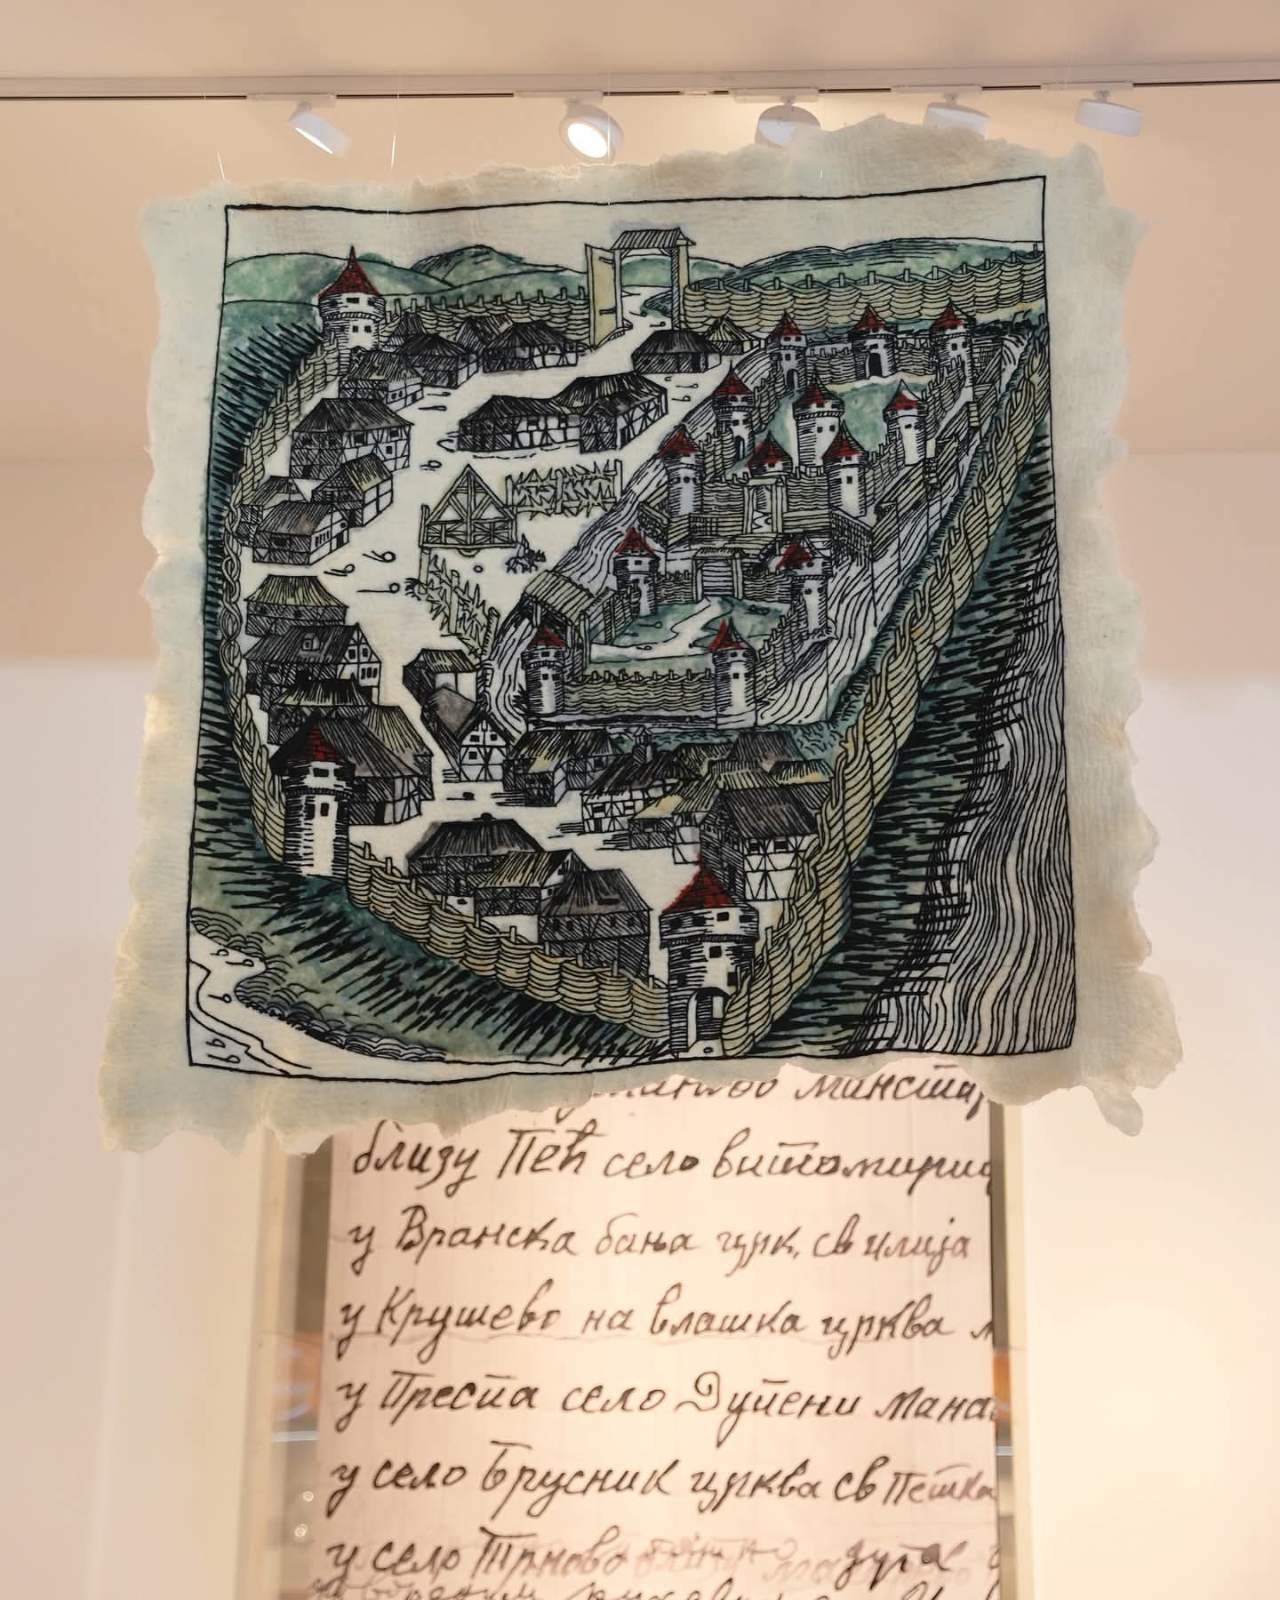 манст
близу Пећ село витомири
у Вранска бања црк. св илија
у Крушево на влашка црква
у Преспа село Дупени мана
у село Брусник црква св Петка
у село Трново